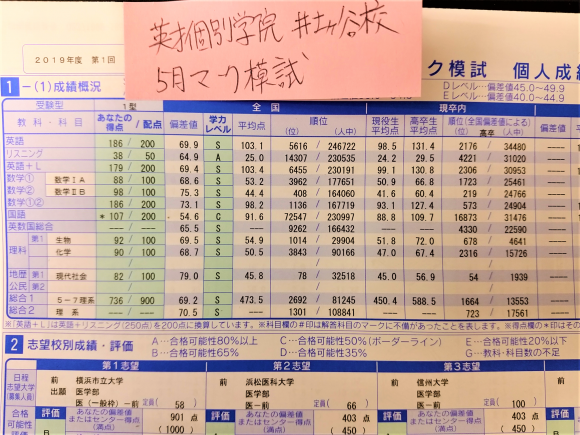 英才個別学院 井土ヶ谷校
5月マーク模試
2019年度 第1回
ク模試 個人成
1 -(1)成績概況
Dレベル…偏差値45.0~49.9
Eレベル…偏差値40.0~44.9
受験型 1型 全国 現卒内
教科・科目 あなたの得点 /配点 偏差値 学力レベル 平均点 順位 (位) (人中) 現役生平均点 高卒生平均点 順位(全国偏差値による) (位) 高卒 (人中) 偏差値
英語 186 / 200 69.9 S 103.1 5616 / 246722 98.5 131.4 2176 / 34480 ----
リスニング 38 / 50 64.9 A 25.0 14307 / 230535 24.2 29.5 4221 / 31020 ----
英語+L 179 / 200 69.4 S 103.4 6455 / 230191 99.1 130.8 2306 / 30953 ----
数学① 数学ⅠA 88 / 100 68.6 S 53.2 3962 / 177651 50.9 66.8 1723 / 25461 ----
数学② 数学ⅡB 98 / 100 75.3 S 44.4 408 / 164060 41.6 60.4 219 / 24766 ----
数学①② 186 / 200 73.1 S 98.2 1136 / 167719 93.1 127.4 573 / 24904 ----
国語 *107 / 200 54.6 C 91.6 72547 / 230997 88.8 109.7 16873 / 31476 ----
英数国総合 ---- ---- 65.5 S ---- 9262 / 166432 ---- ---- 4330 / 22590 ----
理科 第1 生物 92 / 100 69.5 S 54.9 1014 / 29904 51.8 72.0 678 / 4641 ----
化学 90 / 100 68.7 S 50.5 3843 / 90166 47.0 67.4 2316 / 15726 ----
地歴公民 第1 現代社会 82 / 100 79.0 S 45.8 78 / 32518 45.0 56.9 54 / 1939 ----
第2
総合1 5-7理系 736 / 900 69.2 S 473.5 2692 / 81245 450.4 588.5 1664 / 13553 ----
総合2 理系 ---- ---- 70.5 S ---- 1301 / 108841 ---- ---- 723 / 17561 ----
※[英語+L]は英語+リスニング(250点)を200点に換算しています。※科目欄の#印は解答科目のマークに不備があったことを表します。※得点欄の*印はその
2 志望校別成績・評価
A…合格可能性80%以上 C…合格可能性50%(ボーダーライン) E…合格可能性20%以下
B…合格可能性65% D…合格可能性35% G…教科・科目数の不足
第1志望 第2志望 第3志望
日程 志望大学 (募集人員)
前 横浜市立大学 前 浜松医科大学 前 信州大学
出願 医学部 医学部 医学部
医(一般枠)-前 定員(58) 医-前 定員(66) 医-前 定員(100)
合格可能性評価
評価 あなたの偏差値またはセンター得点(満点) 901点(1000) 評価 あなたの偏差値またはセンター得点(満点) 403点(450) 評価 あなたの偏差値またはセンター得点(満点) 403点(450)